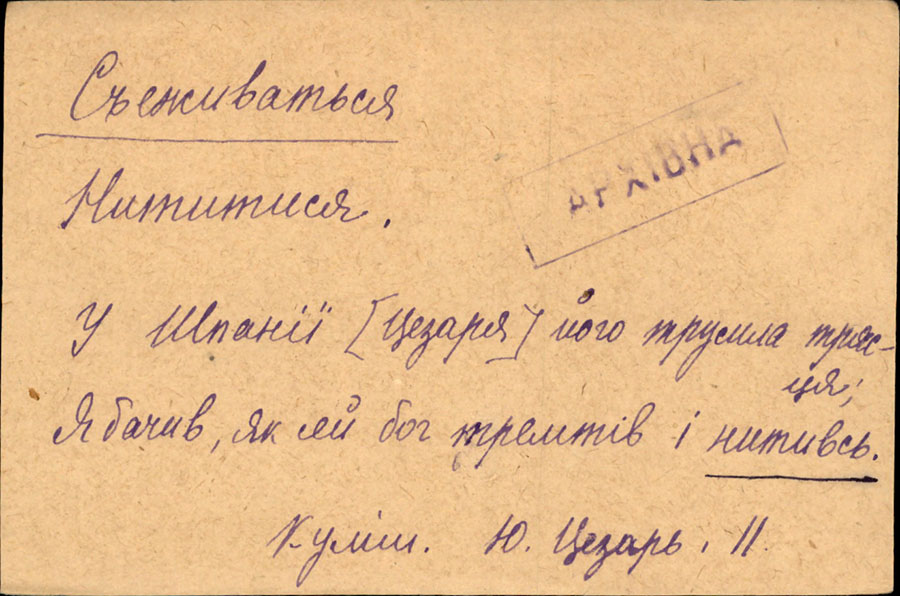 Съеживаться
АРХІВНА
Нититися.
У Шпанії [Цезаря] його трусила тряс-
ця;
Я бачив, як сей бог тремтів і нитивсь.
Куліш. Ю. Цезарь. 11.